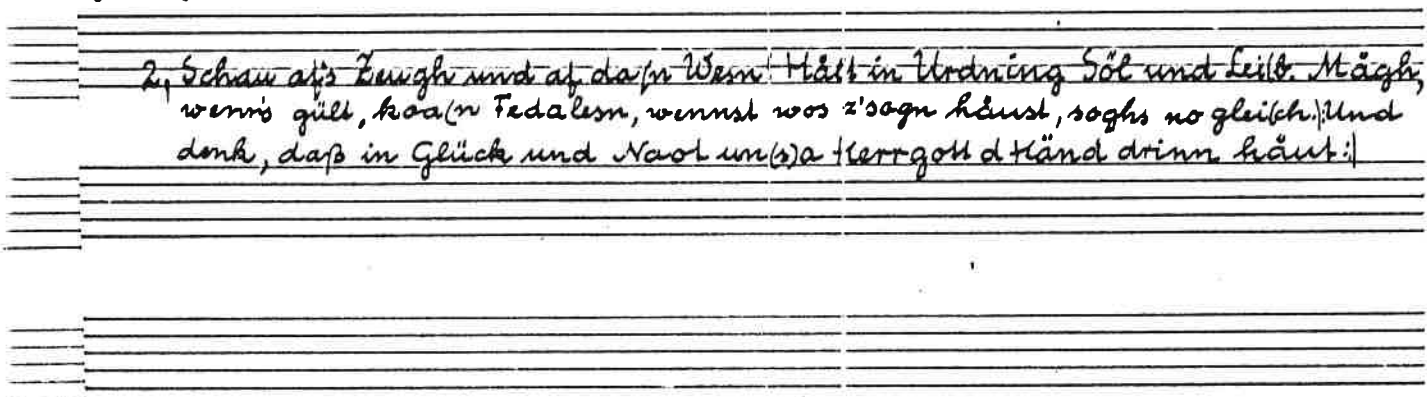 2, Schau af's Zeugh und af da(n Wesn! Hålt in Urdning Söl und Lei(b. Mågh,
wenn's gült, koa(n Fedalesn, wennst wos z'sogn håust, soghs no glei(ch.|:Und
denk, daß in Glück und Naot un(s)a Herrgott d Händ drinn håut:|